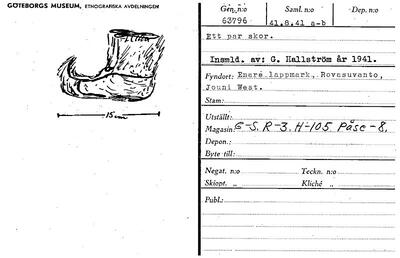 GÖTEBORGS MUSEUM, ETNOGRAFISKA AVDELNINGEN
15 cm
Gen. n:o Saml. n:o Dep. n:o
63796 41.8.41 a-b
Ett par skor.
Insmld. av: G. Hallström år 1941.
Fyndort: Enare lappmark, Rovasuvanto,
Jouni West.
Stam:
Utställt:
Magasin: E-S. R-3. H-105 Påse-8.
Depon.:
Byte till:
Negat. n:o Teckn. n:o
Skiopt. „ Kliché „
Publ.: